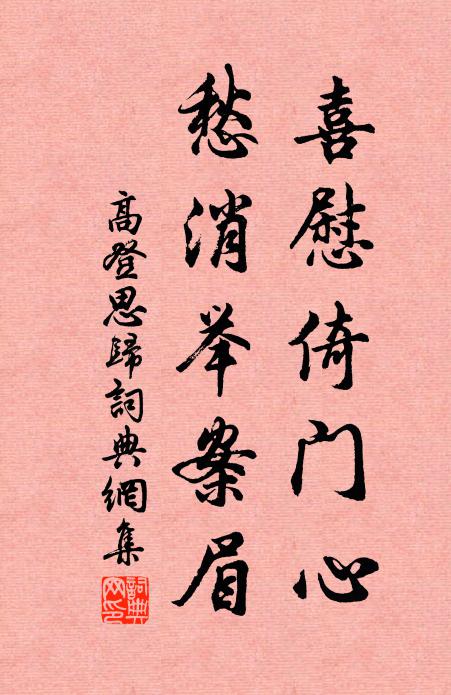 喜慰倚门心
愁消举案眉
高登思歸詞典網集
詞典
网印